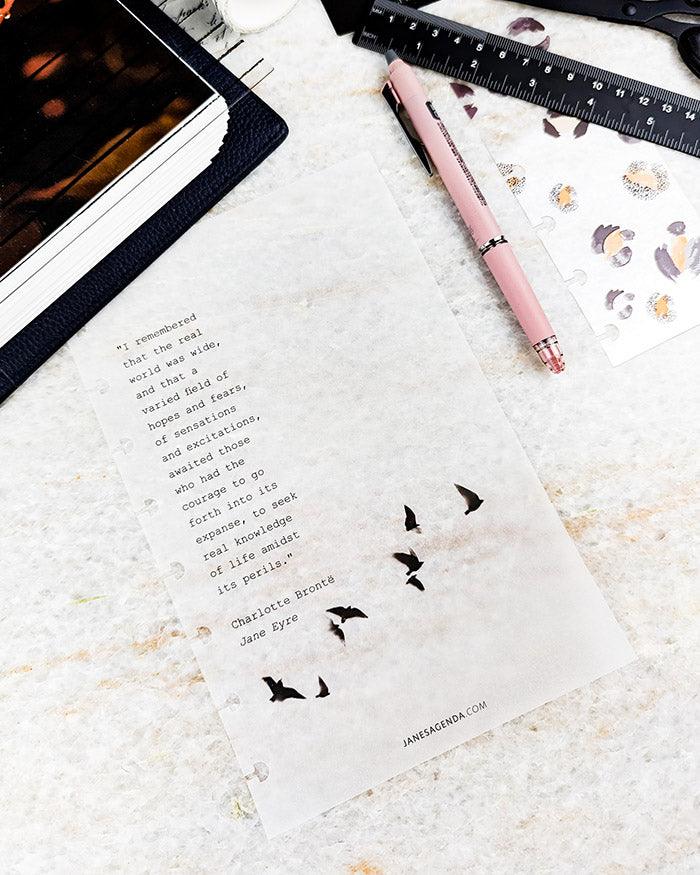 "I remembered
that the real
world was wide,
and that a
varied field of
hopes and fears,
of sensations
and excitations,
awaited those
who had the
courage to go
forth into its
expanse, to seek
real knowledge
of life amidst
its perils."
Charlotte Brontë
Jane Eyre
JANESAGENDA.COM
MM 1 2 3 4 5 6 7 8 9 10 11 12 13 14
INCH 1 2 3 4 5